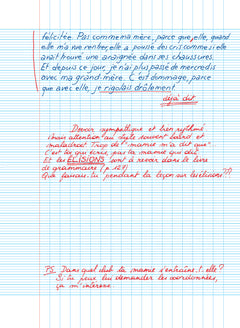 félicitée. Pas comme ma mère, parce que, elle, quand
elle m'a vue rentrer, elle a poussé des cris comme si elle
avait trouvé une araignée dans ses chaussures.
Et depuis ce jour, je n'ai plus passé de mercredis
avec ma grand-mère. C'est dommage, parce
que avec elle, je rigolais drôlement.
déjà dit
Devoir sympathique et bien rythmé
mais attention au style souvent lourd et
maladroit! Trop de "mamie m'a dit que".
C'est toi qui écris, pas ta mamie qui dit.
Et les ÉLISIONS sont à revoir dans le livre
de grammaire (p. 127)
Que faisais-tu pendant la leçon sur les élisions??
PS. Dans quel club ta mamie s'entraîne-t-elle?
Si tu peux lui demander les coordonnées,
ça m'intéresse